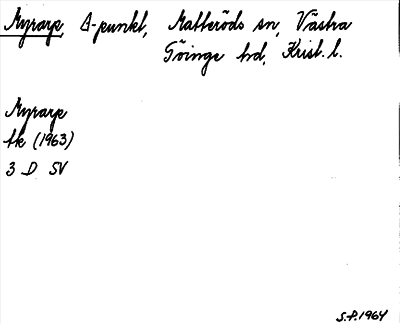 Myrarp, Δ-punkt, Matteröds sn, Västra
Göinge hd, Krist. l.
Myrarp
tk (1963)
3 D SV
S.P. 1964